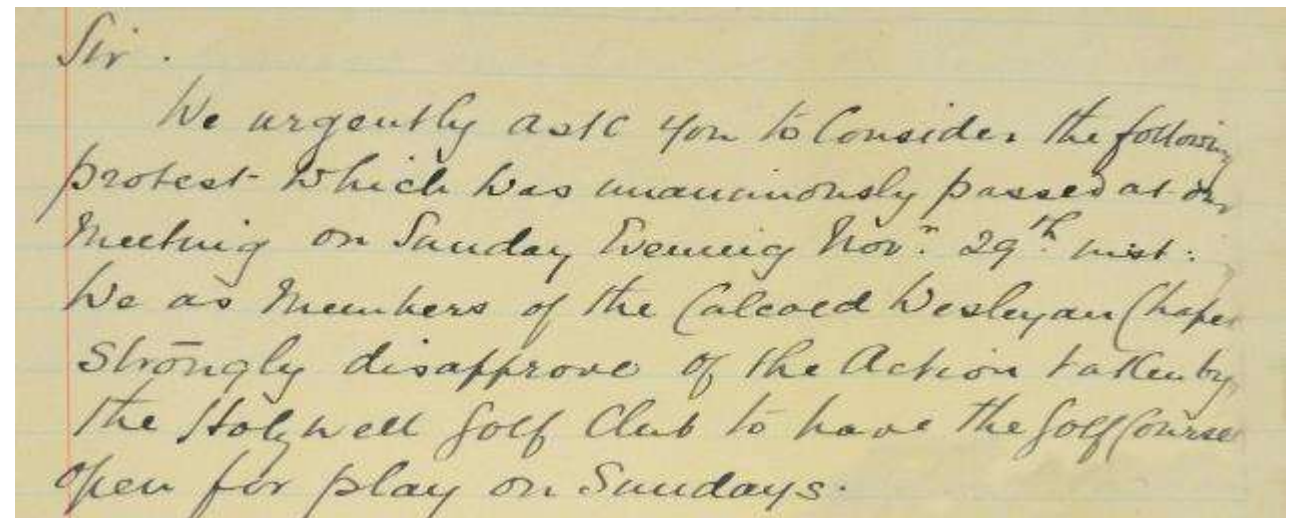 Sir.
We urgently ask you to Consider the following
protest which was unanimously passed at our
Meeting on Sunday Evening Novr. 29th inst:
We as Members of the Calcoed Wesleyan Chapel
Strongly disapprove of the Action taken by
the Holywell Golf Club to have the Golf Course
open for play on Sundays.